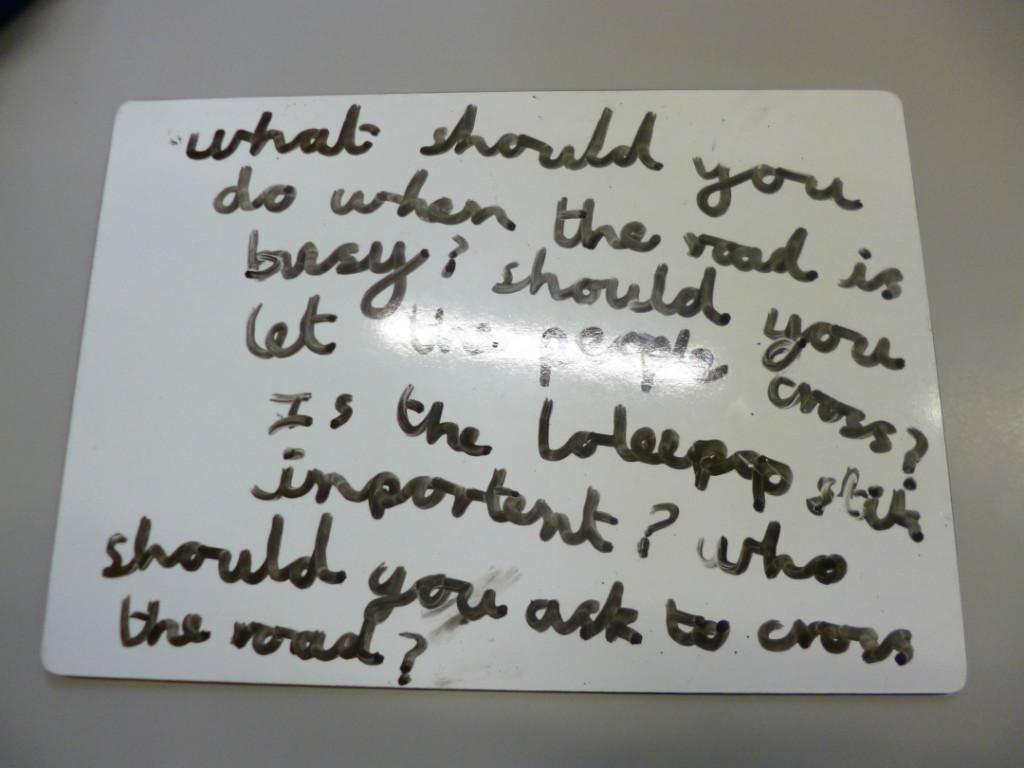 what should you
do when the road is
busy? should you
let the people cross?
Is the loleepop stik
inportent? who
should you ask to cross
the road?